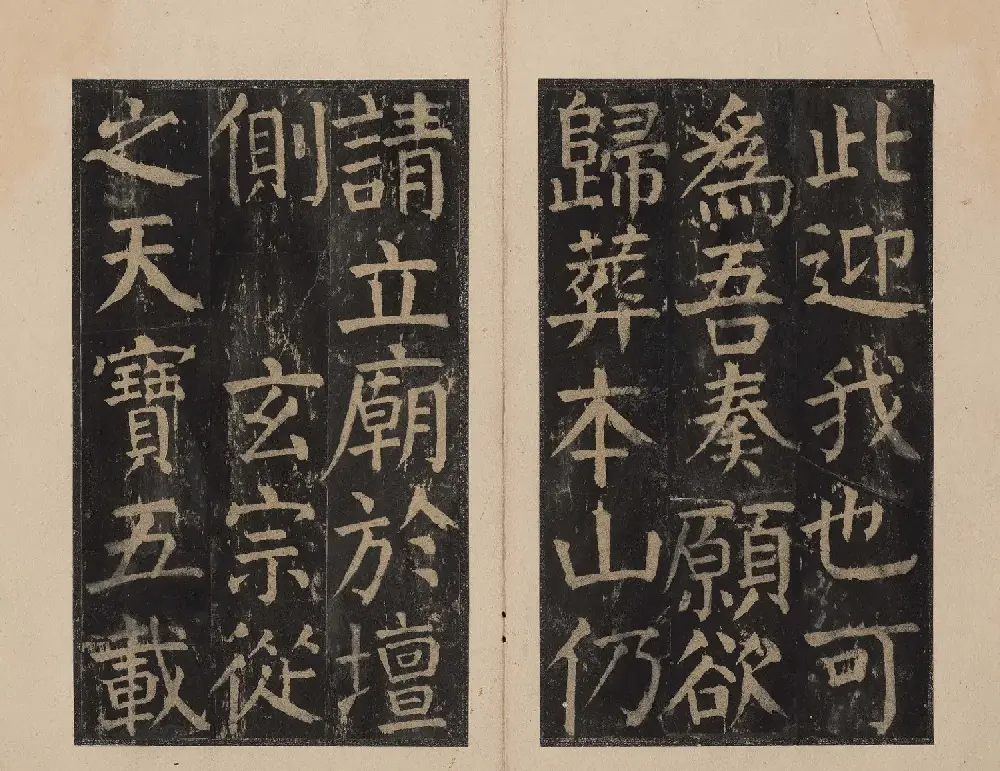 此迎我也可
爲吾奏願欲
歸葬本山仍
請立廟於壇
側 玄宗從
之天寶五載